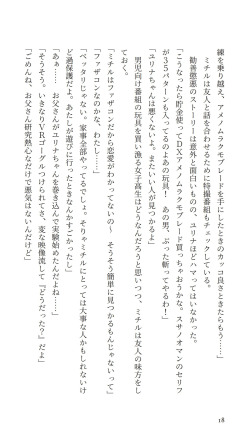 練を乗り越え、アメノムラクモブレードを手にしたときのカッコ良さときたらもう……」
　ミチルは友人と話を合わせるために特撮番組もチェックしている。
　勧善懲悪のストーリーは意外と面白いものの、ユリナほどハマってはいなかった。
「こうなったら貯金使ってＤＸアメノムラクモブレード買っちゃおうかな。スサノオマンのセリフ
が３５パターンも入ってるのよあの玩具！　あの男、ぶった斬ってやるわ！」
「ユリナちゃんは悪くないよ。またいい人が見つかるよ」
　男児向け番組の玩具を買い漁る女子高生はどうなんだろうと思いつつ、ミチルは友人の味方をし
ておく。
「ミチルはファザコンだから恋愛がわかってないの〜　そうそう簡単に見つかるもんじゃないって」
「ファザコンなのかな、わたし……」
「ベッタリじゃない。家事全部やってるでしょ。そりゃミチルにとっては大事な人かもしれないけ
ど過保護だよ。あたしが遊びに行ったときなんかすごかったし」
「あぁ……　お父さんがユリナちゃんを巻き込んで実験始めたんだよね……」
「そうそう。いきなりＶＲゴーグルつけられて、変な映像流して『どうだった？』だよ」
「ごめんね、お父さん研究熱心なだけで悪気はないんだけど」
18